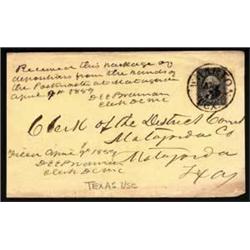 Received this package of
depositions from the hands of
the Postmaster at Matagorda
April 9th 1859
D E E Braman
Clerk DCMC
Clerk of the District Court
Matagorda Co
Matagorda
Texas
April 9th 1859
D E E Braman
Clerk DCMC
TEXAS USC